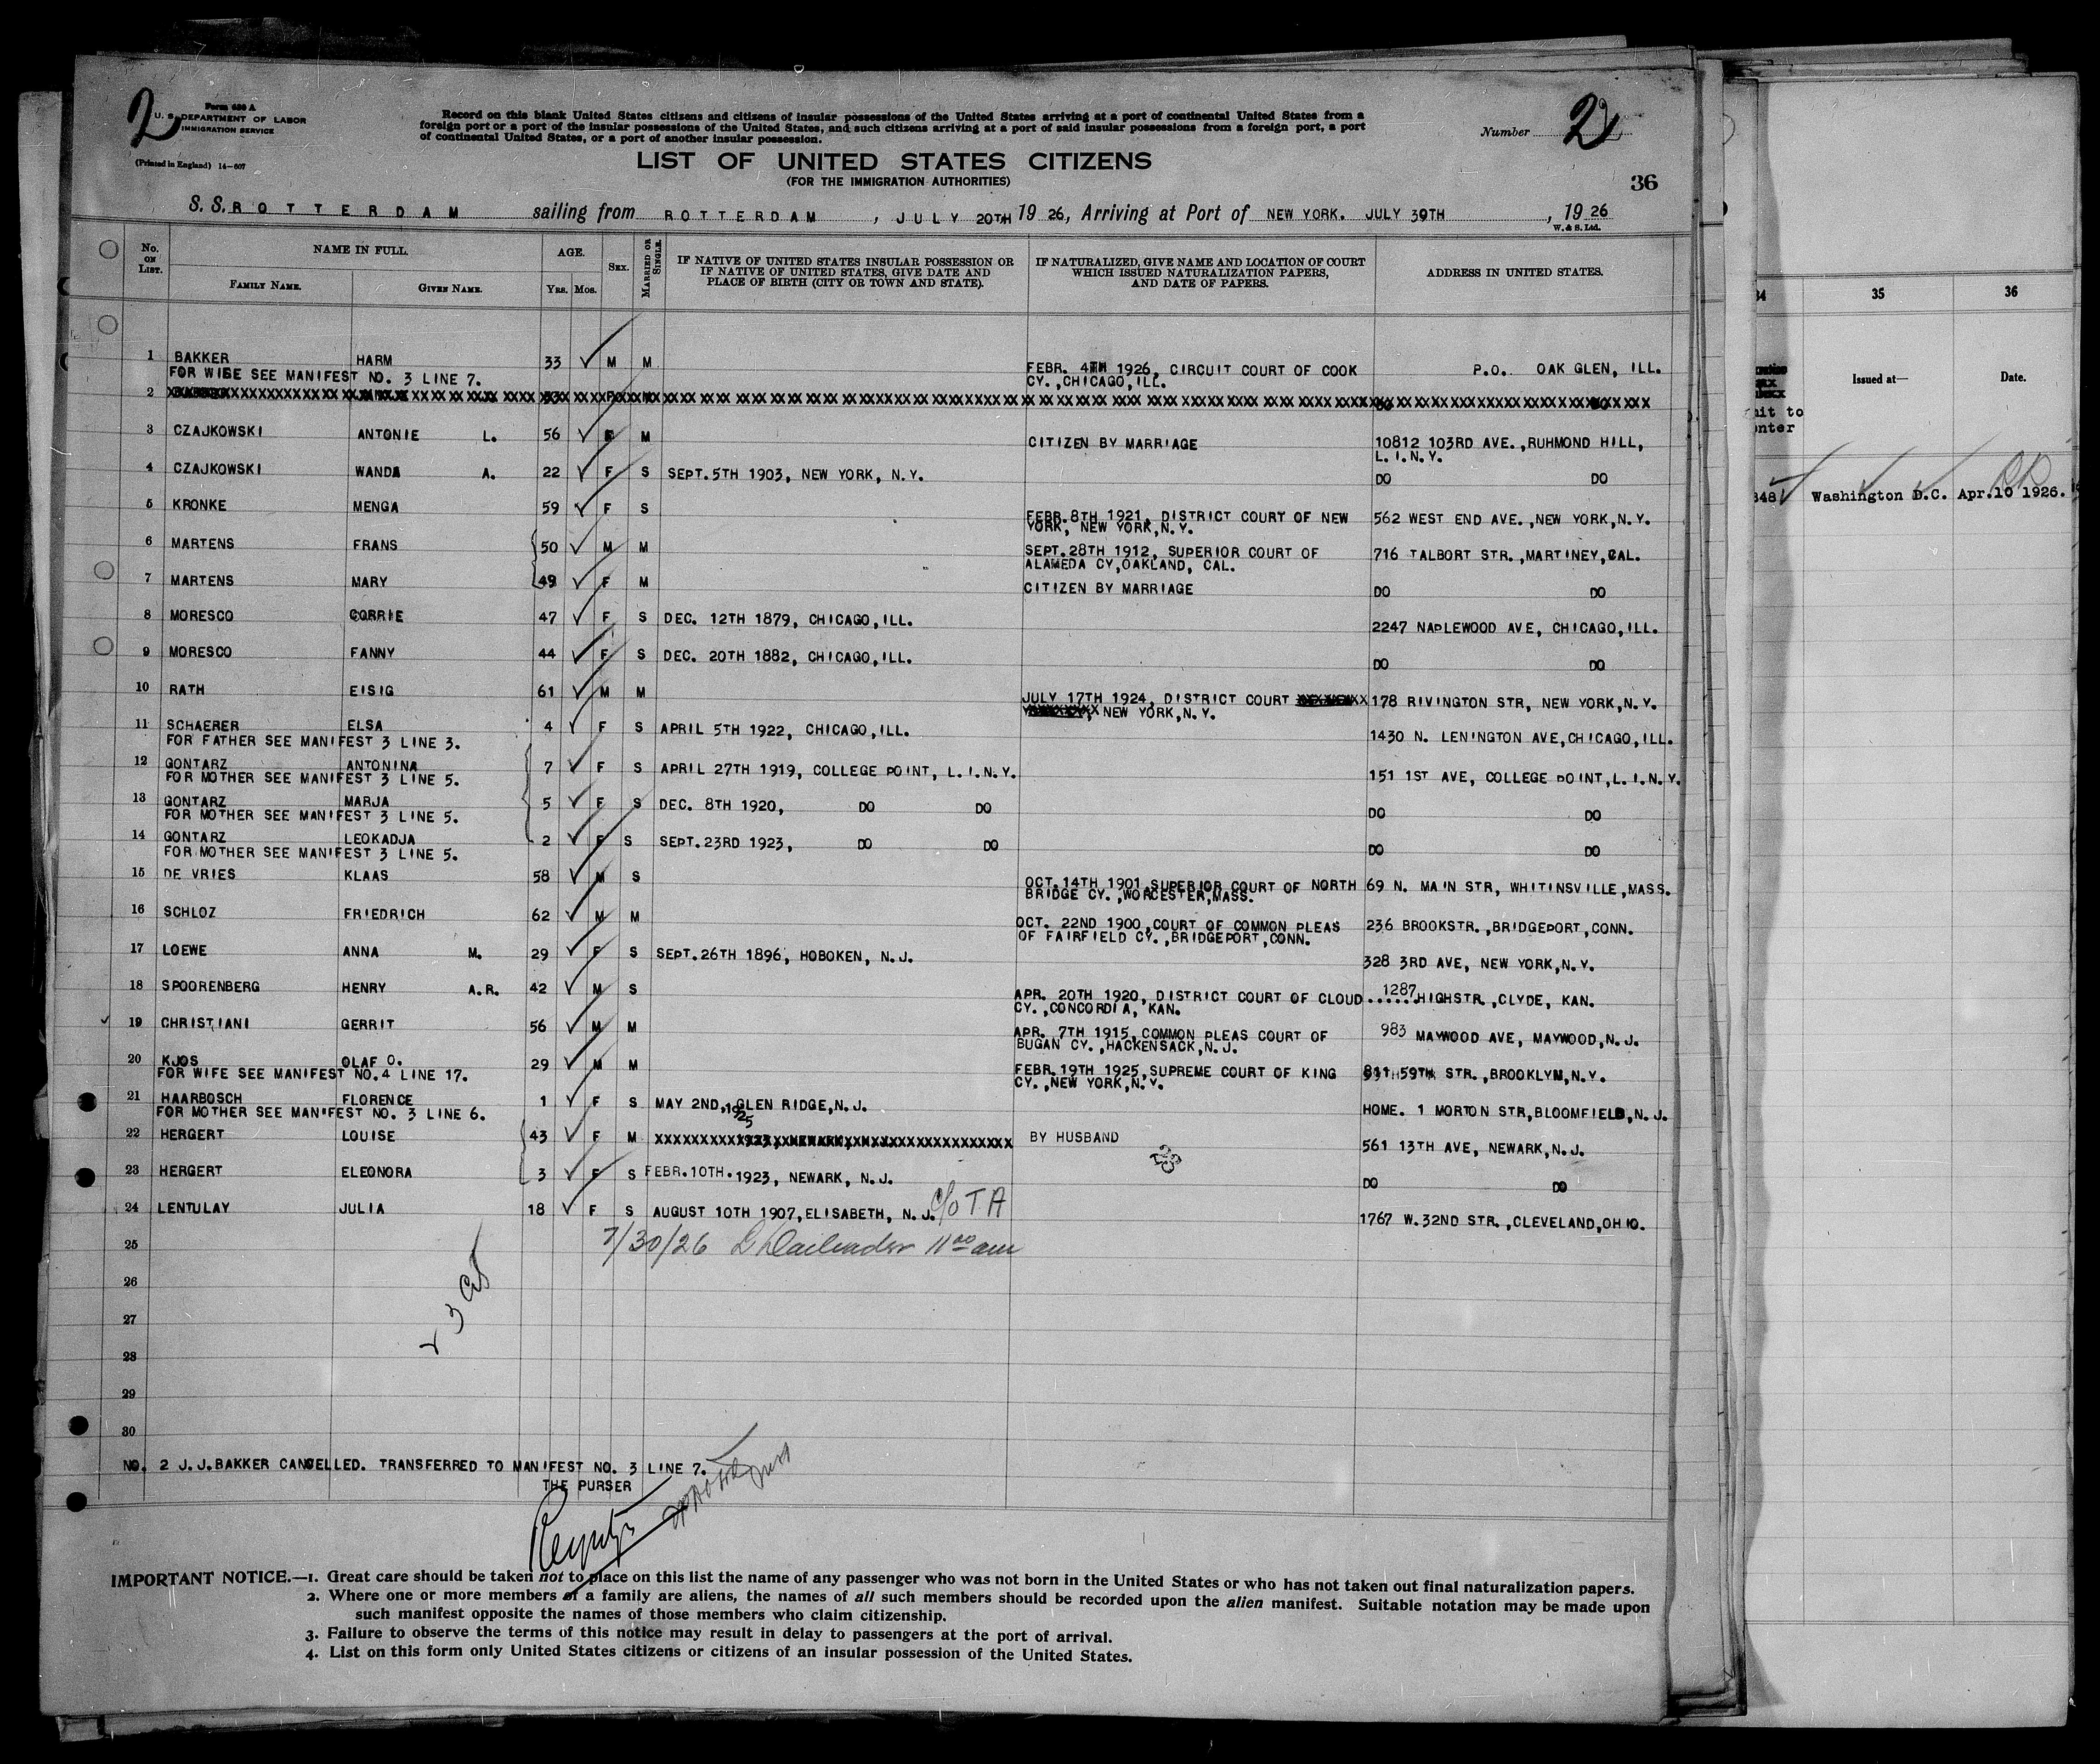 2
Form 630 A
U. S. DEPARTMENT OF LABOR
IMMIGRATION SERVICE
(Printed in England) 14—607
Record on this blank United States citizens and citizens of insular possessions of the United States arriving at a port of continental United States from a
foreign port or a port of the insular possessions of the United States, and such citizens arriving at a port of said insular possessions from a foreign port, a port
of continental United States, or a port of another insular possession.
Number 2
LIST OF UNITED STATES CITIZENS
(FOR THE IMMIGRATION AUTHORITIES)
36
S. S. ROTTERDAM sailing from ROTTERDAM, JULY 20TH 1926, Arriving at Port of NEW YORK. JULY 30TH, 1926
W. & S. Ltd.
No. ON LIST. NAME IN FULL. AGE. SEX. MARRIED OR SINGLE. IF NATIVE OF UNITED STATES INSULAR POSSESSION OR IF NATIVE OF UNITED STATES, GIVE DATE AND PLACE OF BIRTH (CITY OR TOWN AND STATE). IF NATURALIZED, GIVE NAME AND LOCATION OF COURT WHICH ISSUED NATURALIZATION PAPERS, AND DATE OF PAPERS. ADDRESS IN UNITED STATES.
FAMILY NAME. GIVEN NAME. YRS. MOS.
1 BAKKER HARM 33 M M FEBR. 4TH 1926, CIRCUIT COURT OF COOK P.O. OAK GLEN, ILL.
FOR WIBE SEE MANIFEST NO. 3 LINE 7. CY.,CHICAGO,ILL.
2
3 CZAJKOWSKI ANTONIE L. 56 F M CITIZEN BY MARRIAGE 10812 103RD AVE.,RUHMOND HILL,
L.I.N.Y.
4 CZAJKOWSKI WANDA A. 22 F S SEPT.5TH 1903, NEW YORK, N.Y. DO DO
5 KRONKE MENGA 59 F S FEBR.8TH 1921, DISTRICT COURT OF NEW 562 WEST END AVE.,NEW YORK,N.Y.
YORK, NEW YORK,N.Y.
6 MARTENS FRANS 50 M M SEPT.28TH 1912, SUPERIOR COURT OF 716 TALBORT STR.,MARTINEY,CAL.
ALAMEDA CY,OAKLAND, CAL.
7 MARTENS MARY 49 F M CITIZEN BY MARRIAGE DO DO
8 MORESCO CORRIE 47 F S DEC. 12TH 1879, CHICAGO,ILL. 2247 NAPLEWOOD AVE, CHICAGO,ILL.
9 MORESCO FANNY 44 F S DEC. 20TH 1882, CHICAGO,ILL. DO DO
10 RATH EISIG 61 M M JULY 17TH 1924, DISTRICT COURT 178 RIVINGTON STR, NEW YORK,N.Y.
NEW YORK,N.Y.
11 SCHAERER ELSA 4 F S APRIL 5TH 1922, CHICAGO,ILL. 1430 N. LENINGTON AVE,CHICAGO,ILL.
FOR FATHER SEE MANIFEST 3 LINE 3.
12 GONTARZ ANTONINA 7 F S APRIL 27TH 1919, COLLEGE POINT, L.I.N.Y. 151 1ST AVE, COLLEGE POINT,L.I.N.Y.
FOR MOTHER SEE MANIFEST 3 LINE 5.
13 GONTARZ MARJA 5 F S DEC. 8TH 1920, DO DO DO DO
FOR MOTHER SEE MANIFEST 3 LINE 5.
14 GONTARZ LEOKADJA 2 F S SEPT.23RD 1923, DO DO DO DO
FOR MOTHER SEE MANIFEST 3 LINE 5.
15 DE VRIES KLAAS 58 M S OCT.14TH 1901,SUPERIOR COURT OF NORTH 69 N. MAIN STR, WHITINSVILLE,MASS.
BRIDGE CY.,WORCESTER,MASS.
16 SCHLOZ FRIEDRICH 62 M M OCT. 22ND 1900,COURT OF COMMON PLEAS 236 BROOKSTR.,BRIDGEPORT,CONN.
OF FAIRFIELD CY.,BRIDGEPORT,CONN.
17 LOEWE ANNA M. 29 F S SEPT.26TH 1896, HOBOKEN, N.J. 328 3RD AVE, NEW YORK,N.Y.
18 SPOORENBERG HENRY A.R. 42 M S APR. 20TH 1920, DISTRICT COURT OF CLOUD 1287 HIGHSTR.,CLYDE, KAN.
CY.,CONCORDIA, KAN.
19 CHRISTIANI GERRIT 56 M M APR. 7TH 1915,COMMON PLEAS COURT OF 983 MAYWOOD AVE, MAYWOOD,N.J.
BUGAN CY.,HACKENSACK,N.J.
20 KJOS OLAF O. 29 M M FEBR.19TH 1925,SUPREME COURT OF KING 811 59TH STR.,BROOKLYM,N.Y.
FOR WIFE SEE MANIFEST NO.4 LINE 17. CY.,NEW YORK,N.Y.
21 HAARBOSCH FLORENCE 1 F S MAY 2ND,1925 GLEN RIDGE,N.J. HOME. 1 MORTON STR,BLOOMFIELD,N.J.
FOR MOTHER SEE MANIFEST NO. 3 LINE 6.
22 HERGERT LOUISE 43 F M BY HUSBAND 561 13TH AVE, NEWARK,N.J.
23 HERGERT ELEONORA 3 F S FEBR.10TH.1923, NEWARK, N.J. DO DO
24 LENTULAY JULIA 18 F S AUGUST 10TH 1907,ELISABETH, N.J. C/O T A 1767 W.32ND STR.,CLEVELAND,OHIO.
25 7/30/26 11 00 am
26
27
28
29
30
NO. 2 J.J.BAKKER CANCELLED. TRANSFERRED TO MANIFEST NO. 3 LINE 7.
THE PURSER
IMPORTANT NOTICE.—1. Great care should be taken not to place on this list the name of any passenger who was not born in the United States or who has not taken out final naturalization papers.
2. Where one or more members of a family are aliens, the names of all such members should be recorded upon the alien manifest. Suitable notation may be made upon
such manifest opposite the names of those members who claim citizenship.
3. Failure to observe the terms of this notice may result in delay to passengers at the port of arrival.
4. List on this form only United States citizens or citizens of an insular possession of the United States.
34 35 36
Issued at— Date.
348 Washington D.C. Apr.10 1926.